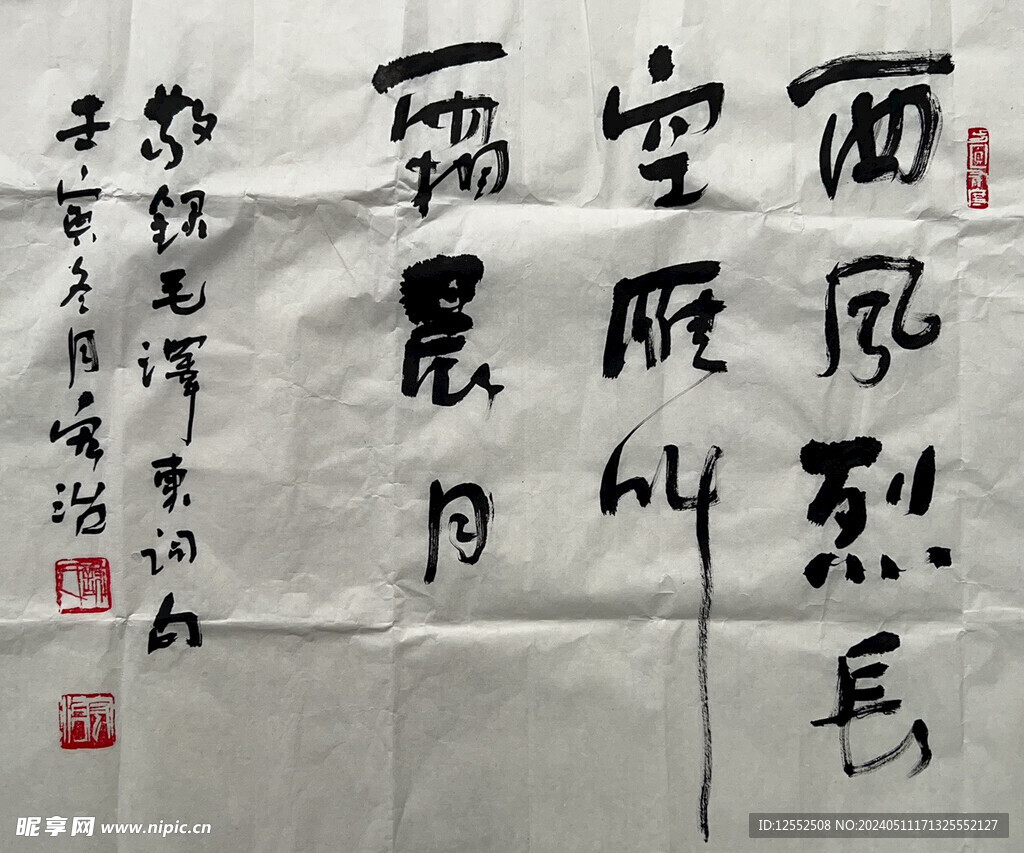 西風烈長
空雁叫
霜晨月
敬録毛澤東词句
壬寅冬月宏治
昵享网 www.nipic.cn
ID:12552508 NO:20240511171325552127